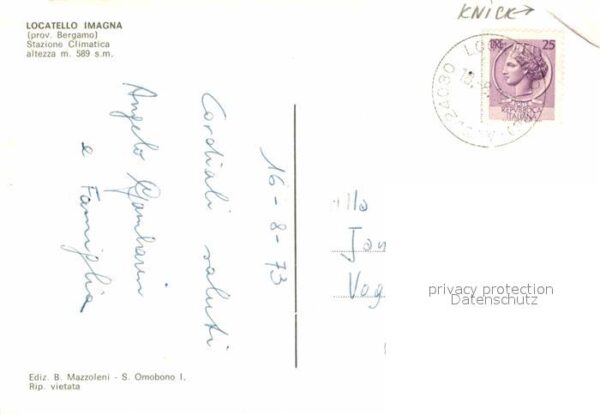 KNICK→
LOCATELLO IMAGNA
(prov. Bergamo)
Stazione Climatica
altezza m. 589 s.m.
25
REPUBBLICA
ITALIANA
24030
16-8-73
Cordiali saluti
Angelo Gambarin
e Famiglia
Alla
privacy protection
Datenschutz
Ediz. B. Mazzoleni - S. Omobono I.
Rip. vietata